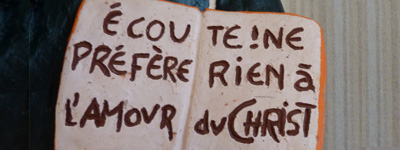 ÉCOUTE!NE
PRÉFÈRE RIEN à
L'AMOUR du CHRIST